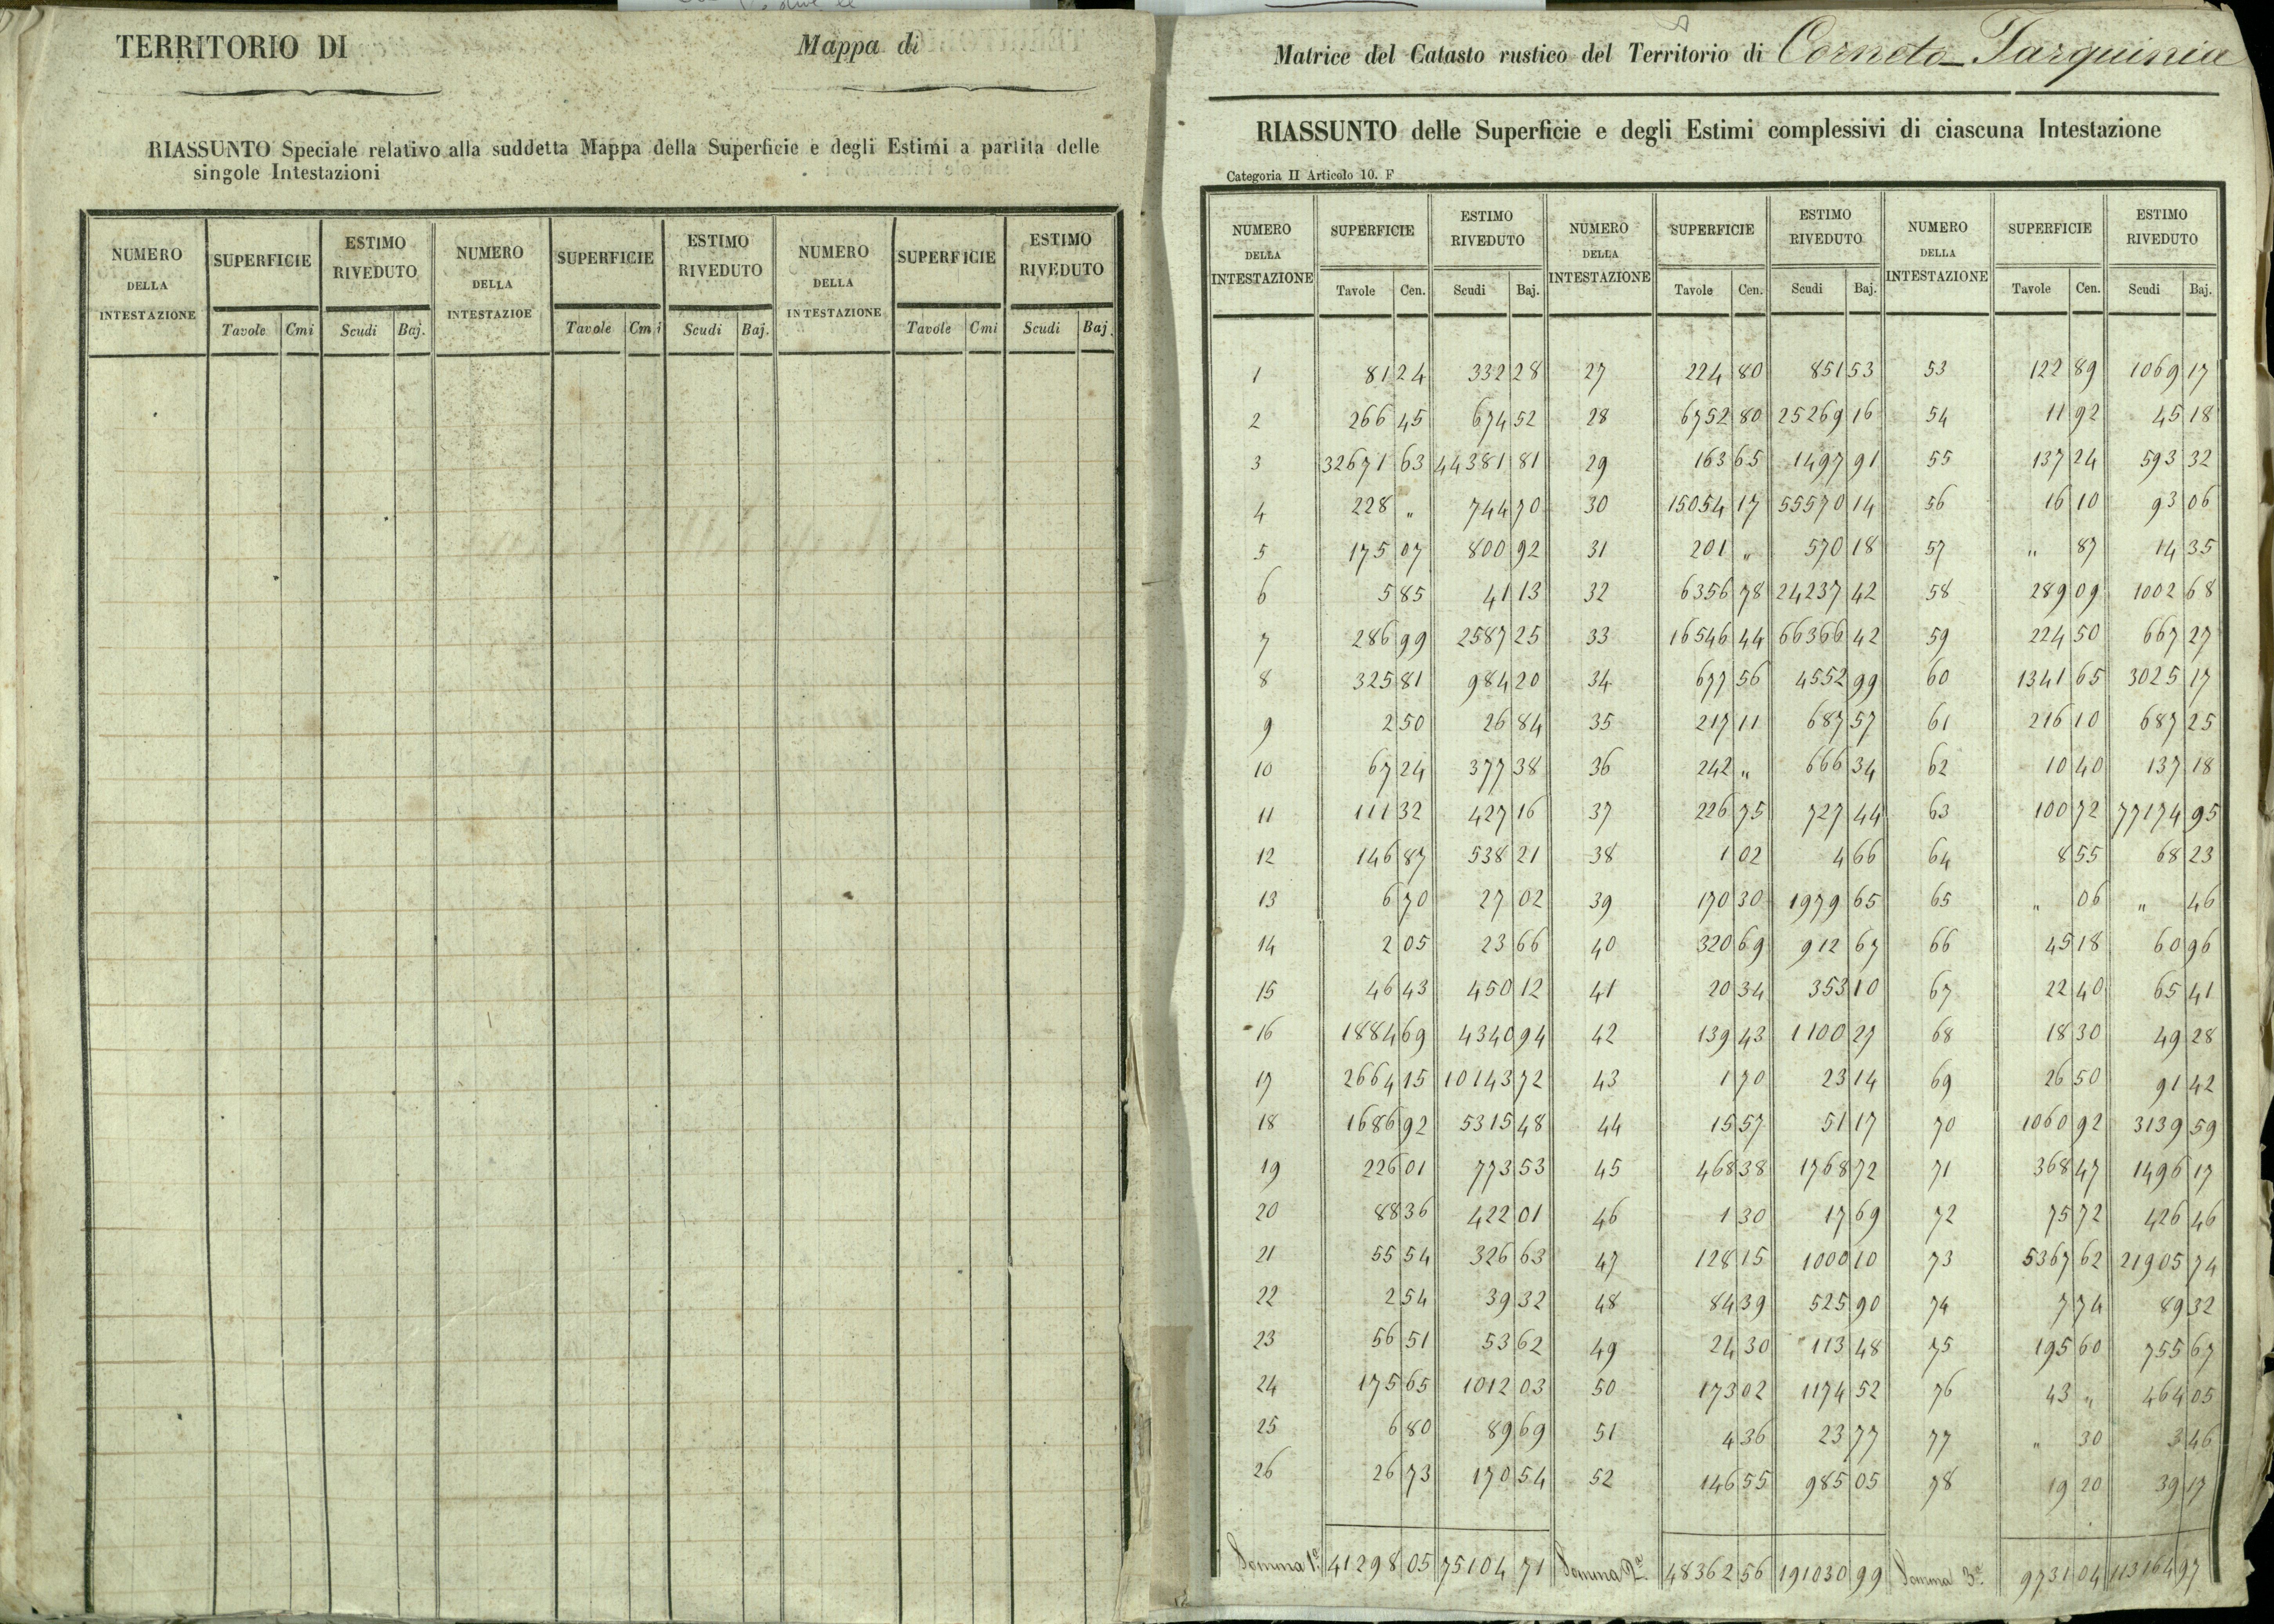 TERRITORIO DI Mappa di
RIASSUNTO Speciale relativo alla suddetta Mappa della Superficie e degli Estimi a partita delle
singole Intestazioni
NUMERO DELLA INTESTAZIONE SUPERFICIE ESTIMO RIVEDUTO NUMERO DELLA INTESTAZIOE SUPERFICIE ESTIMO RIVEDUTO NUMERO DELLA INTESTAZIONE SUPERFICIE ESTIMO RIVEDUTO
Tavole Cmi Scudi Baj. Tavole Cmi Scudi Baj. Tavole Cmi Scudi Baj.
Matrice del Catasto rustico del Territorio di Corneto Tarquinia
RIASSUNTO delle Superficie e degli Estimi complessivi di ciascuna Intestazione
Categoria II Articolo 10. F
NUMERO DELLA INTESTAZIONE SUPERFICIE ESTIMO RIVEDUTO NUMERO DELLA INTESTAZIONE SUPERFICIE ESTIMO RIVEDUTO NUMERO DELLA INTESTAZIONE SUPERFICIE ESTIMO RIVEDUTO
Tavole Cen. Scudi Baj. Tavole Cen. Scudi Baj. Tavole Cen. Scudi Baj.
1 81 24 332 28 27 224 80 851 53 53 122 89 1069 17
2 266 45 674 52 28 6752 80 25269 16 54 11 92 45 18
3 32671 63 44381 81 29 163 65 1497 91 55 137 24 593 32
4 228 " 744 70 30 15054 17 55570 14 56 16 10 93 06
5 175 07 800 92 31 201 " 570 18 57 " 87 14 35
6 5 85 41 13 32 6356 78 24237 42 58 289 09 1002 68
7 286 99 2587 25 33 16546 44 66366 42 59 224 50 667 27
8 325 81 984 20 34 677 56 4552 99 60 1341 65 3025 17
9 2 50 26 84 35 217 11 687 57 61 216 10 687 25
10 67 24 377 38 36 242 " 666 34 62 10 40 137 18
11 111 32 427 16 37 226 75 727 44 63 100 72 77174 95
12 146 87 538 21 38 1 02 4 66 64 8 55 68 23
13 6 70 27 02 39 170 30 1979 65 65 " 06 " 46
14 2 05 23 66 40 320 69 912 67 66 45 18 60 96
15 46 43 450 12 41 20 34 353 10 67 22 40 65 41
16 1884 69 4340 94 42 139 43 1100 27 68 18 30 49 28
17 2664 15 10143 72 43 1 70 23 14 69 26 50 91 42
18 1686 92 5315 48 44 15 57 51 17 70 1060 92 3139 59
19 226 01 773 53 45 468 38 1768 72 71 368 47 1496 17
20 88 36 422 01 46 1 30 17 69 72 75 72 426 46
21 55 54 326 63 47 128 15 1000 10 73 5367 62 21905 74
22 2 54 39 32 48 84 39 525 90 74 7 74 89 32
23 56 51 53 62 49 24 30 113 48 75 195 60 755 67
24 175 65 1012 03 50 173 02 1174 52 76 43 " 464 05
25 6 80 89 69 51 4 36 23 77 77 " 30 3 46
26 26 73 170 54 52 146 55 985 05 78 19 20 39 17
Somma 1a. 41298 05 75104 71 Somma 2a. 48362 56 191030 99 Somma 3a. 9731 04 113164 97